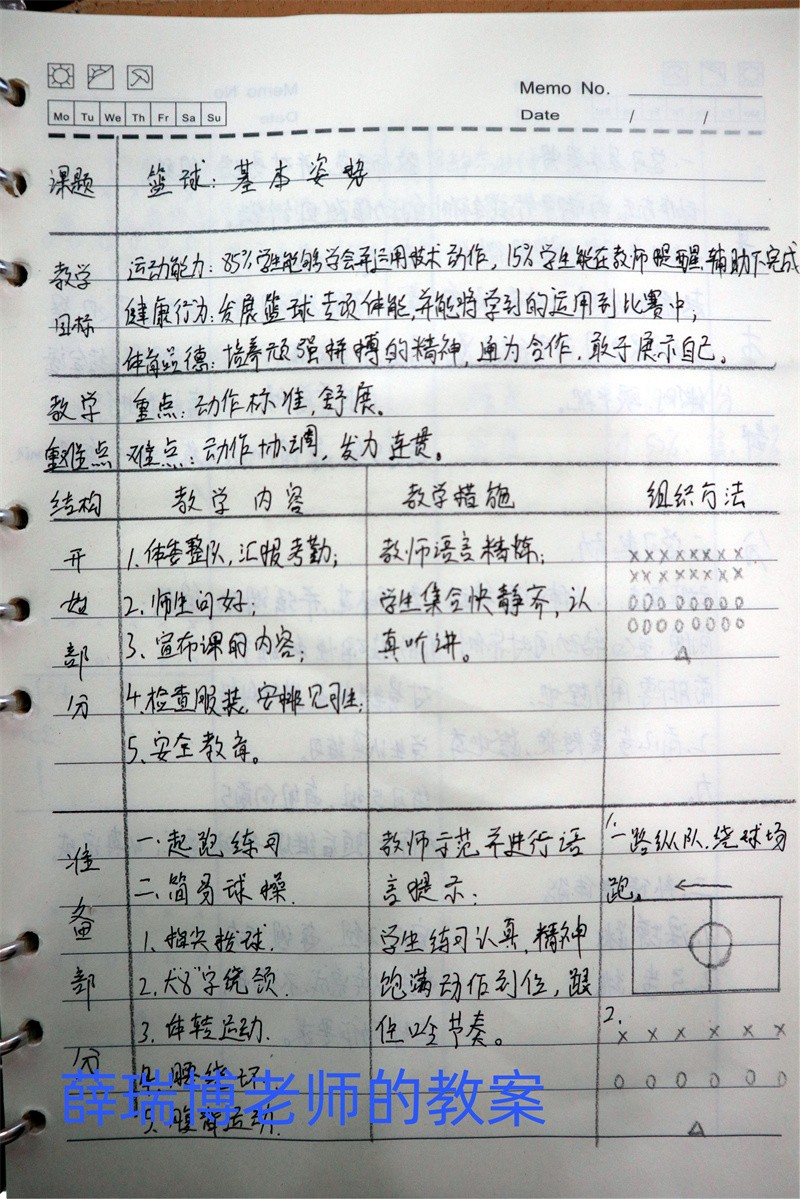 Memo No.
Mo Tu We Th Fr Sa Su
Date / /
课题 篮球：基本姿势
教学 运动能力：85%学生能够学会并运用技术动作，15%学生能在教师提醒辅助下完成
目标 健康行为：发展篮球专项体能，并能将学到的运用到比赛中；
体育品德：培养顽强拼搏的精神，通为合作，敢于展示自己。
教学 重点：动作标准，舒展。
重难点 难点：动作协调，发力连贯。
结构 教学内容 教学措施 组织方法
开始部分
1、体委整队，汇报考勤；
2、师生问好；
3、宣布课的内容；
4、检查服装，安排见习生；
5、安全教育。
教师语言精炼；
学生集合快静齐，认
真听讲。
××××××××
××××××××
00000000
00000000
△
准备部分
一、起跑练习
二、简易球操.
1、指尖拨球.
2、大“8”字绕颈.
3、体转运动.
4、腰绕环
5、腹背运动.
教师示范并进行语
言提示；
学生练习认真，精神
饱满动作到位，跟
住哈节奏。
1.一路纵队.绕球场
跑。
2.
× × × × × ×
0 0 0 0 0 0
△
薛瑞博老师的教案